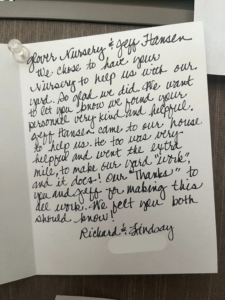 Glover Nursery & Jeff Hansen
We chose to have your
Nursery to help us with our
yard. So glad we did. We want
to let you know we found your
personel very kind and helpful.
Jeff Hansen came to our house
to help us. He too was very
helpful and went the extra
mile, to make our yard "work",
and it does! Our "Thanks" to
you and Jeff for making this
all work. We felt you both
should know!
Richard & Lindsay